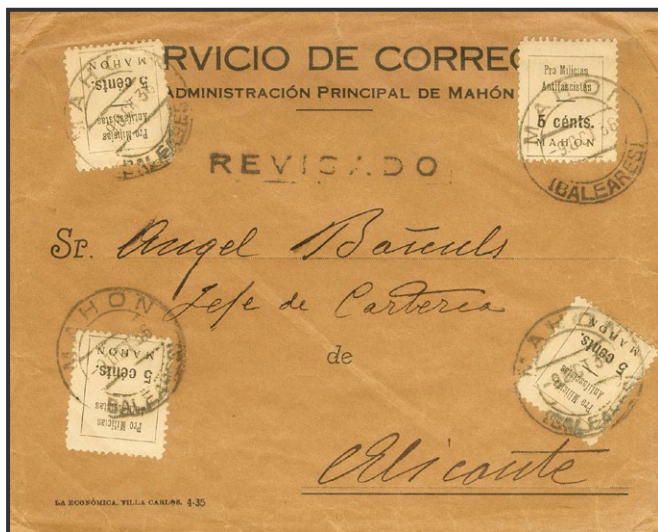 RVICIO DE CORREO
ADMINISTRACIÓN PRINCIPAL DE MAHÓN
Pro Milicias
Antifascistas
5 cents.
MAHON
MAHON
(BALEARES)
Pro Milicias
Antifascistas
5 cents.
MAHON
MAHON
(BALEARES)
REVISADO
Sr. Angel Bañuls
Jefe de Cartería
de
Alicante
Pro Milicias
5 cents.
MAHON
MAHON
(BALEARES)
Pro Milicias
Antifascistas
5 cents.
MAHON
MAHON
(BALEARES)
LA ECONÓMICA. VILLA CARLOS. 4-35